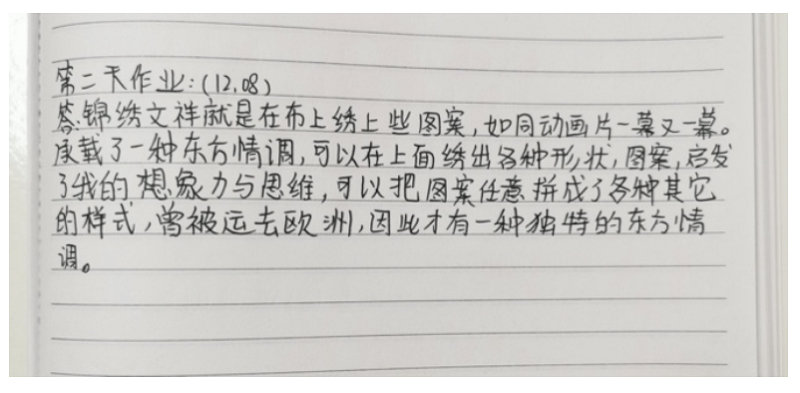 第二天作业:(12.08)
答:锦绣文祥就是在布上绣上些图案,如同动画片一幕又一幕。
承载了一种东方情调,可以在上面绣出各种形状,图案,启发
了我的想象力与思维,可以把图案任意拼成了各种其它
的样式,曾被运去欧洲,因此才有一种独特的东方情
调。